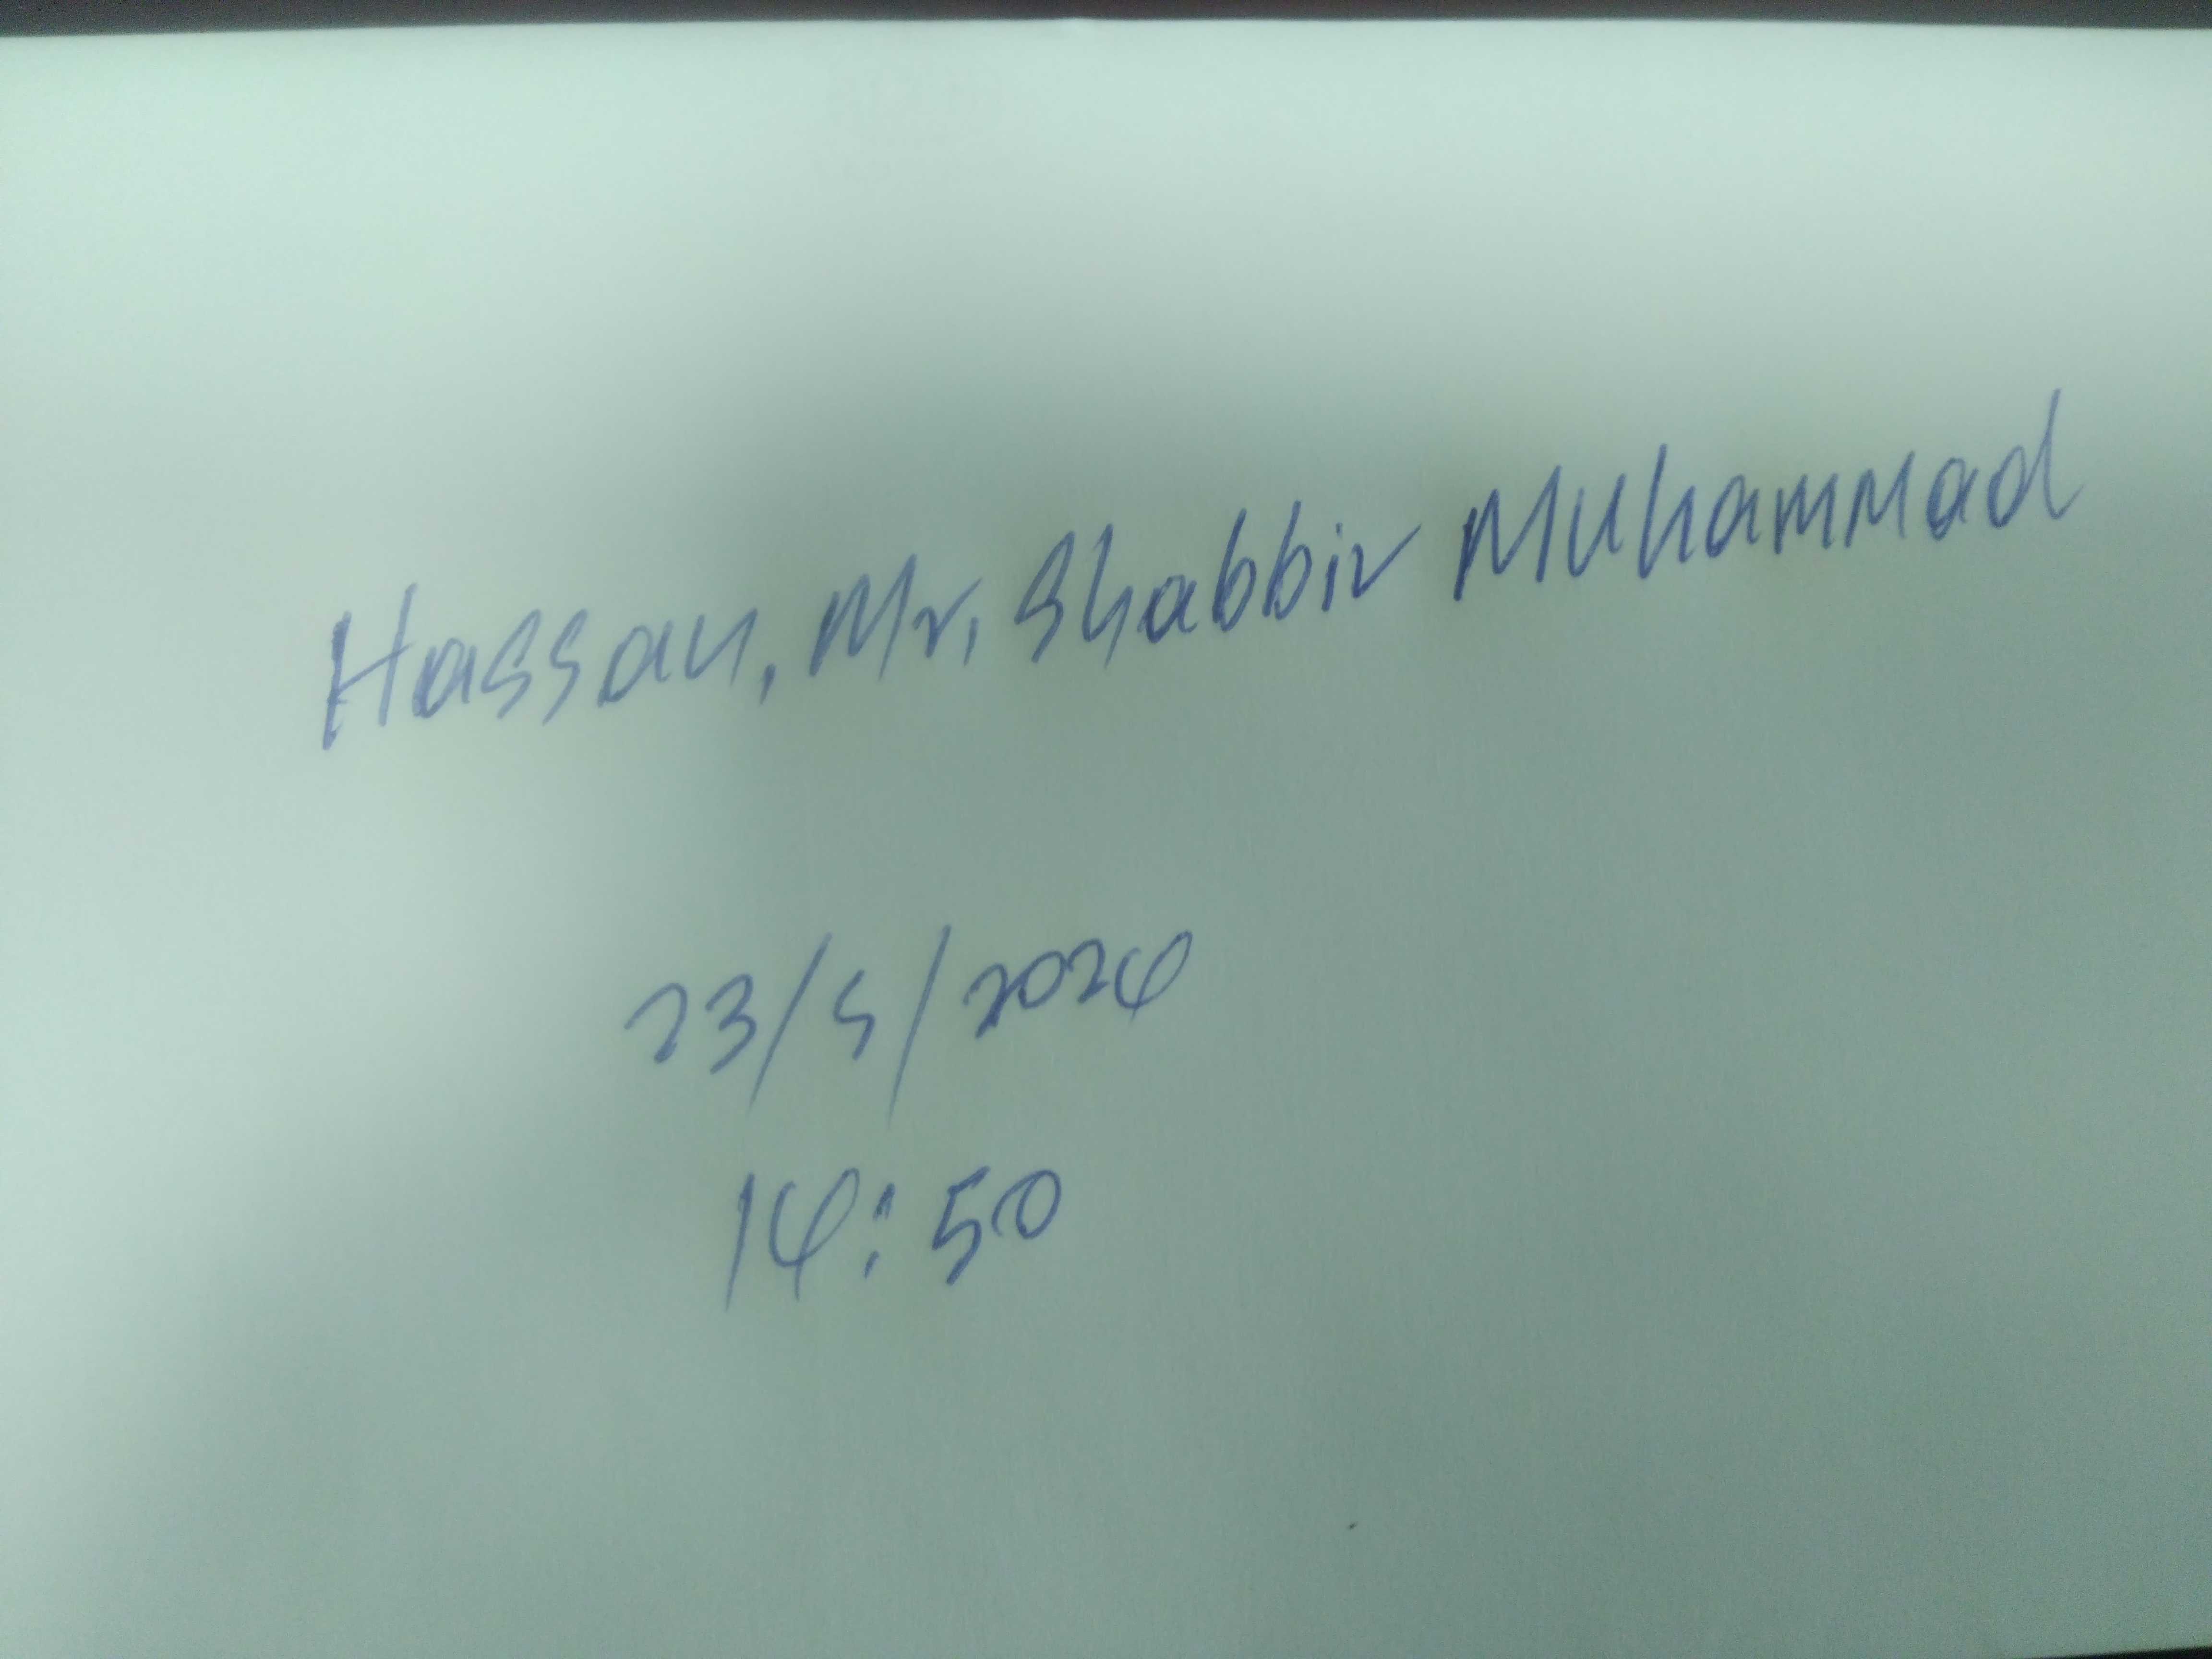 Hassan, Mr. Shabbir Muhammad
23/5/2024
14:50